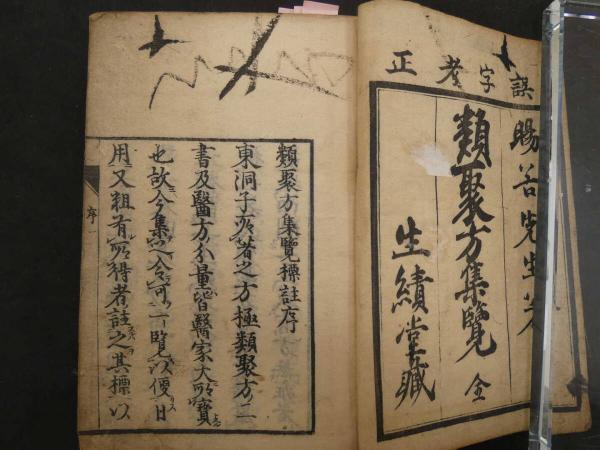 誤字考正
暘谷先生
類聚方集覽 全
生績堂藏
類聚方集覽標註序
東洞子所著之方極類聚方二
書及醫方分量皆醫家大所寶
也故今集之令可一覽以便日
用又粗有所得者註之其標以
序一